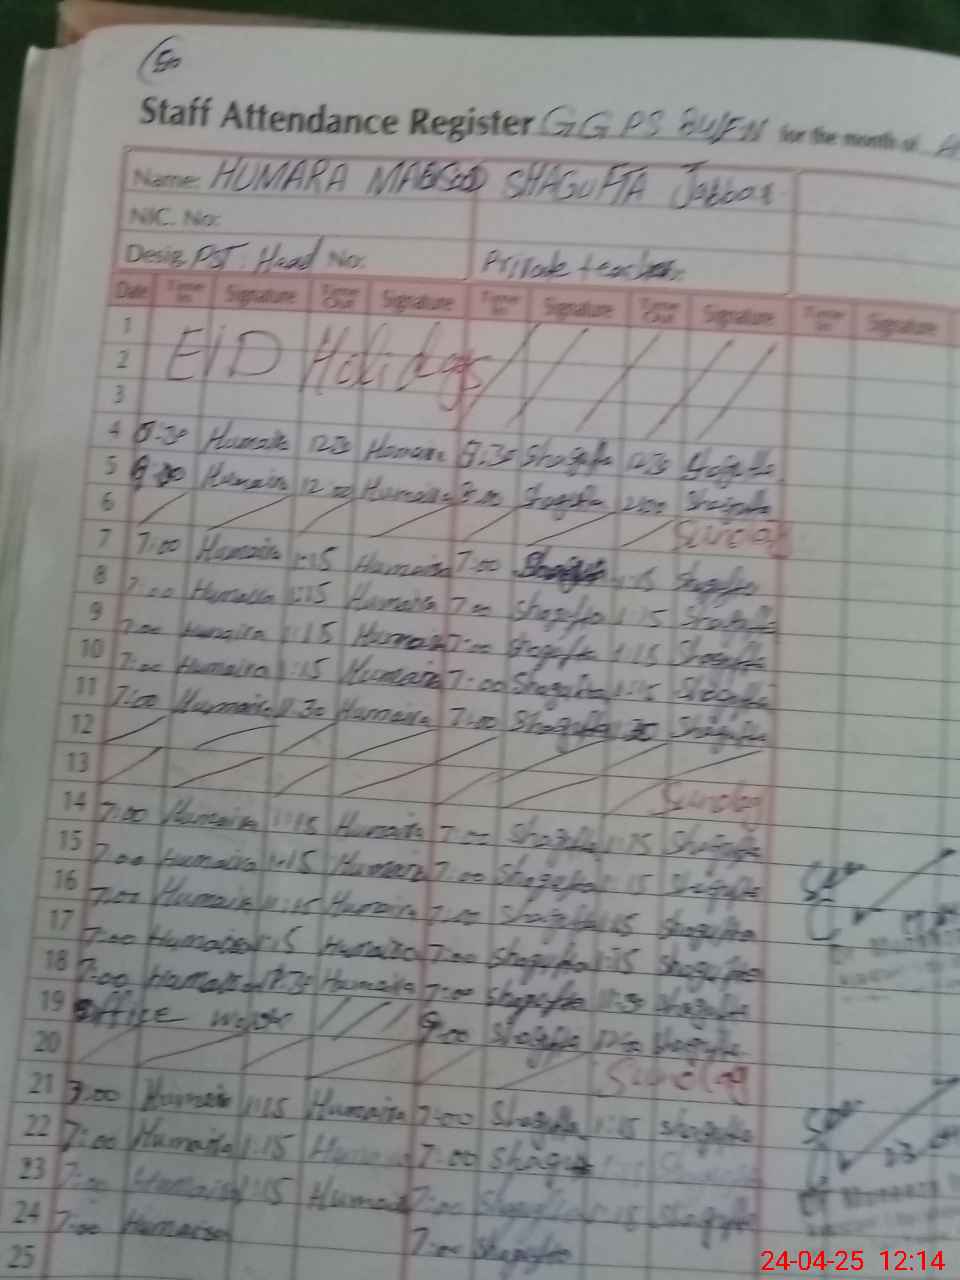 50
Staff Attendance Register GGPS for the month of
Name: HUMARA MABSOOD SHAGUFTA Jabbar
NIC. No:
Desig. PST. Head No: Private teacher
Date Time In Signature Time Out Signature Time In Signature Time Out Signature Time In Signature
1
2 EID Holidays
3
4 8:30 Humaira 12:30 Humaira 8:30 Shagufta 12:30 Shagufta
5 Humaira 12:00 Humaira Shagufta Shagufta
6 Sunday
7 7:00 Humaira 1:15 Humaira 7:00 Shagufta 1:15 Shagufta
8 7:00 Humaira 1:15 Humaira 7:00 Shagufta 1:15 Shagufta
9 7:00 Humaira 1:15 Humaira 7:00 Shagufta 1:15 Shagufta
10 7:00 Humaira 1:15 Humaira 7:00 Shagufta 1:15 Shagufta
11 7:00 Humaira Humaira 7:00 Shagufta Shagufta
12
13 Sunday
14 7:00 Humaira 1:15 Humaira 7:00 Shagufta 1:15 Shagufta
15 7:00 Humaira 1:15 Humaira 7:00 Shagufta 1:15 Shagufta
16 7:00 Humaira 1:15 Humaira 7:00 Shagufta 1:15 Shagufta
17 7:00 Humaira 1:15 Humaira 7:00 Shagufta 1:15 Shagufta
18 7:00 Humaira Humaira 7:00 Shagufta Shagufta
19 office work Shagufta Shagufta
20 Sunday
21 Humaira 1:15 Humaira 7:00 Shagufta 1:15 Shagufta
22 7:00 Humaira 1:15 7:00
23 7:00 Humaira 1:15 Humaira 7:00 Shagufta 1:15 Shagufta
24 7:00 Humaira 7:00 Shagufta
25
24-04-25 12:14